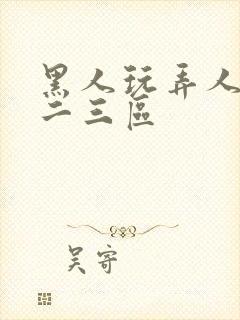 黑人玩弄人
二三區
吴寄